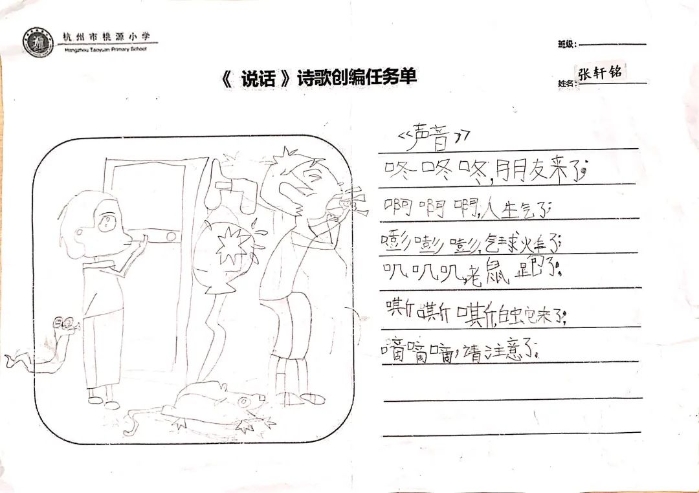 杭州市桃源小学
Hangzhou Taoyuan Primary School
班级:
《 说话 》诗歌创编任务单
姓名: 张轩铭
《声音》
咚咚咚,朋友来了;
啊啊啊,人生气了;
嘭嘭嘭,气球炸了;
叽叽叽,老鼠跑了;
嘶嘶嘶,白蛇来了;
嘀嘀嘀,请注意了;